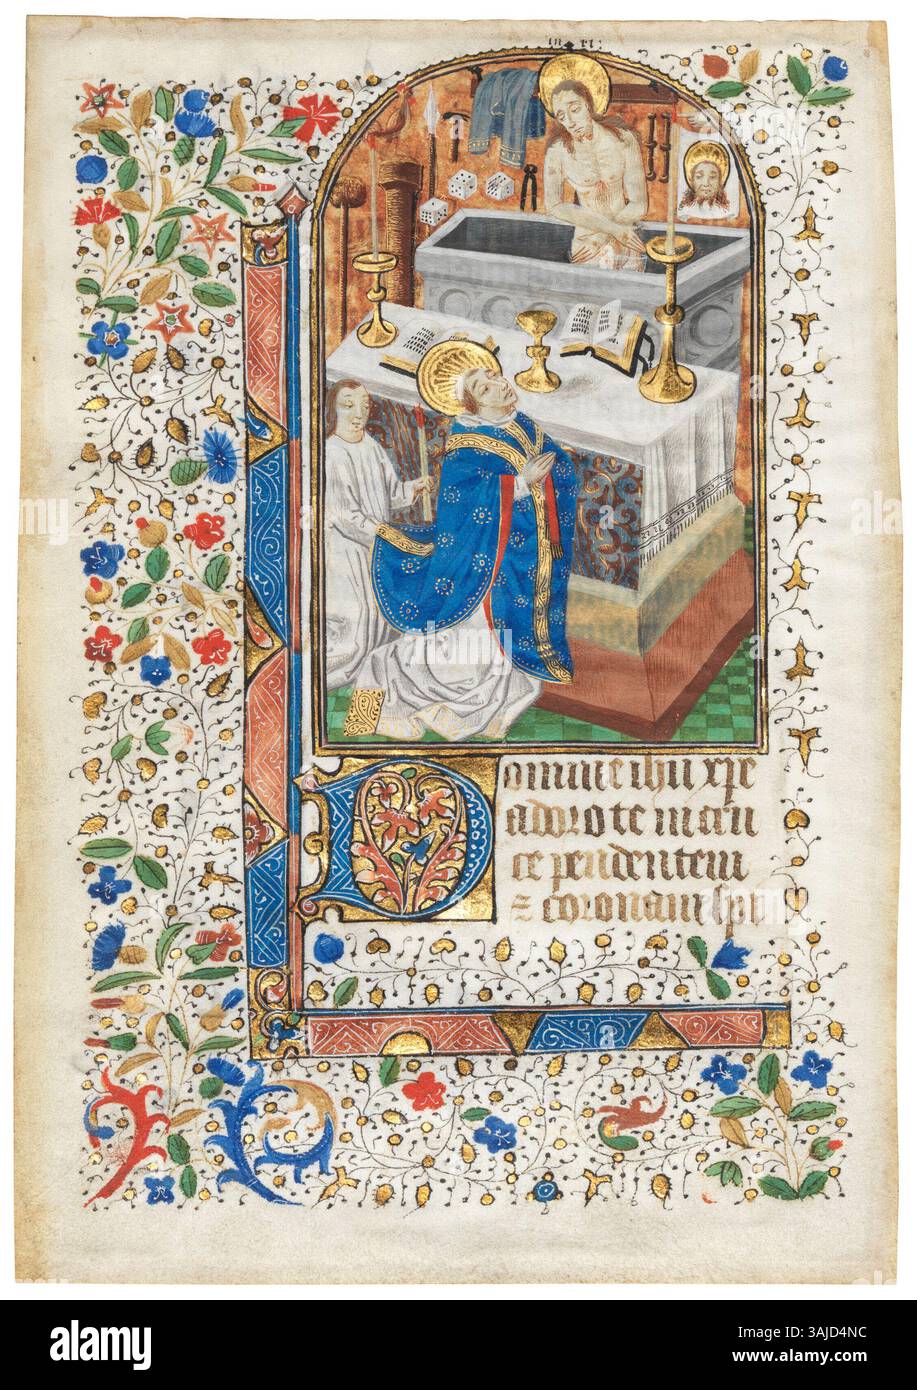 i n r i
Domine ihu xpe
adoro te in cru
ce pendentem
⁊ coronam spi
alamy
Image ID: 3AJD4NC
www.alamy.com